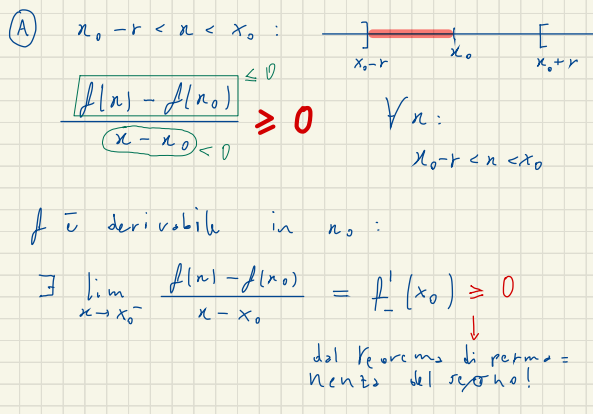 A x₀ - r < x < x₀ :
x₀-r x₀ x₀+r
f(x) - f(x₀) ≤ 0
x - x₀ < 0
≥ 0
∀ x :
x₀-r < x < x₀
f è derivabile in x₀ :
∃ lim x→x₀⁻ f(x) - f(x₀) / x - x₀ = f'₋(x₀) ≥ 0
dal teorema di perma =
nenza del segno!